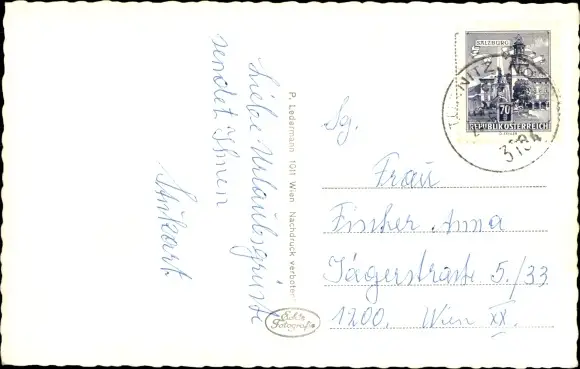 Liebe Urlaubsgrüße
sendet Ihnen
P. Ledermann 1011 Wien Nachdruck verboten
Echte
Fotografie
SALZBURG
70
REPUBLIK ÖSTERREICH
3184
Sg.
Frau
Fischer Anna
Jägerstraße 5./33
1200. Wien XX.